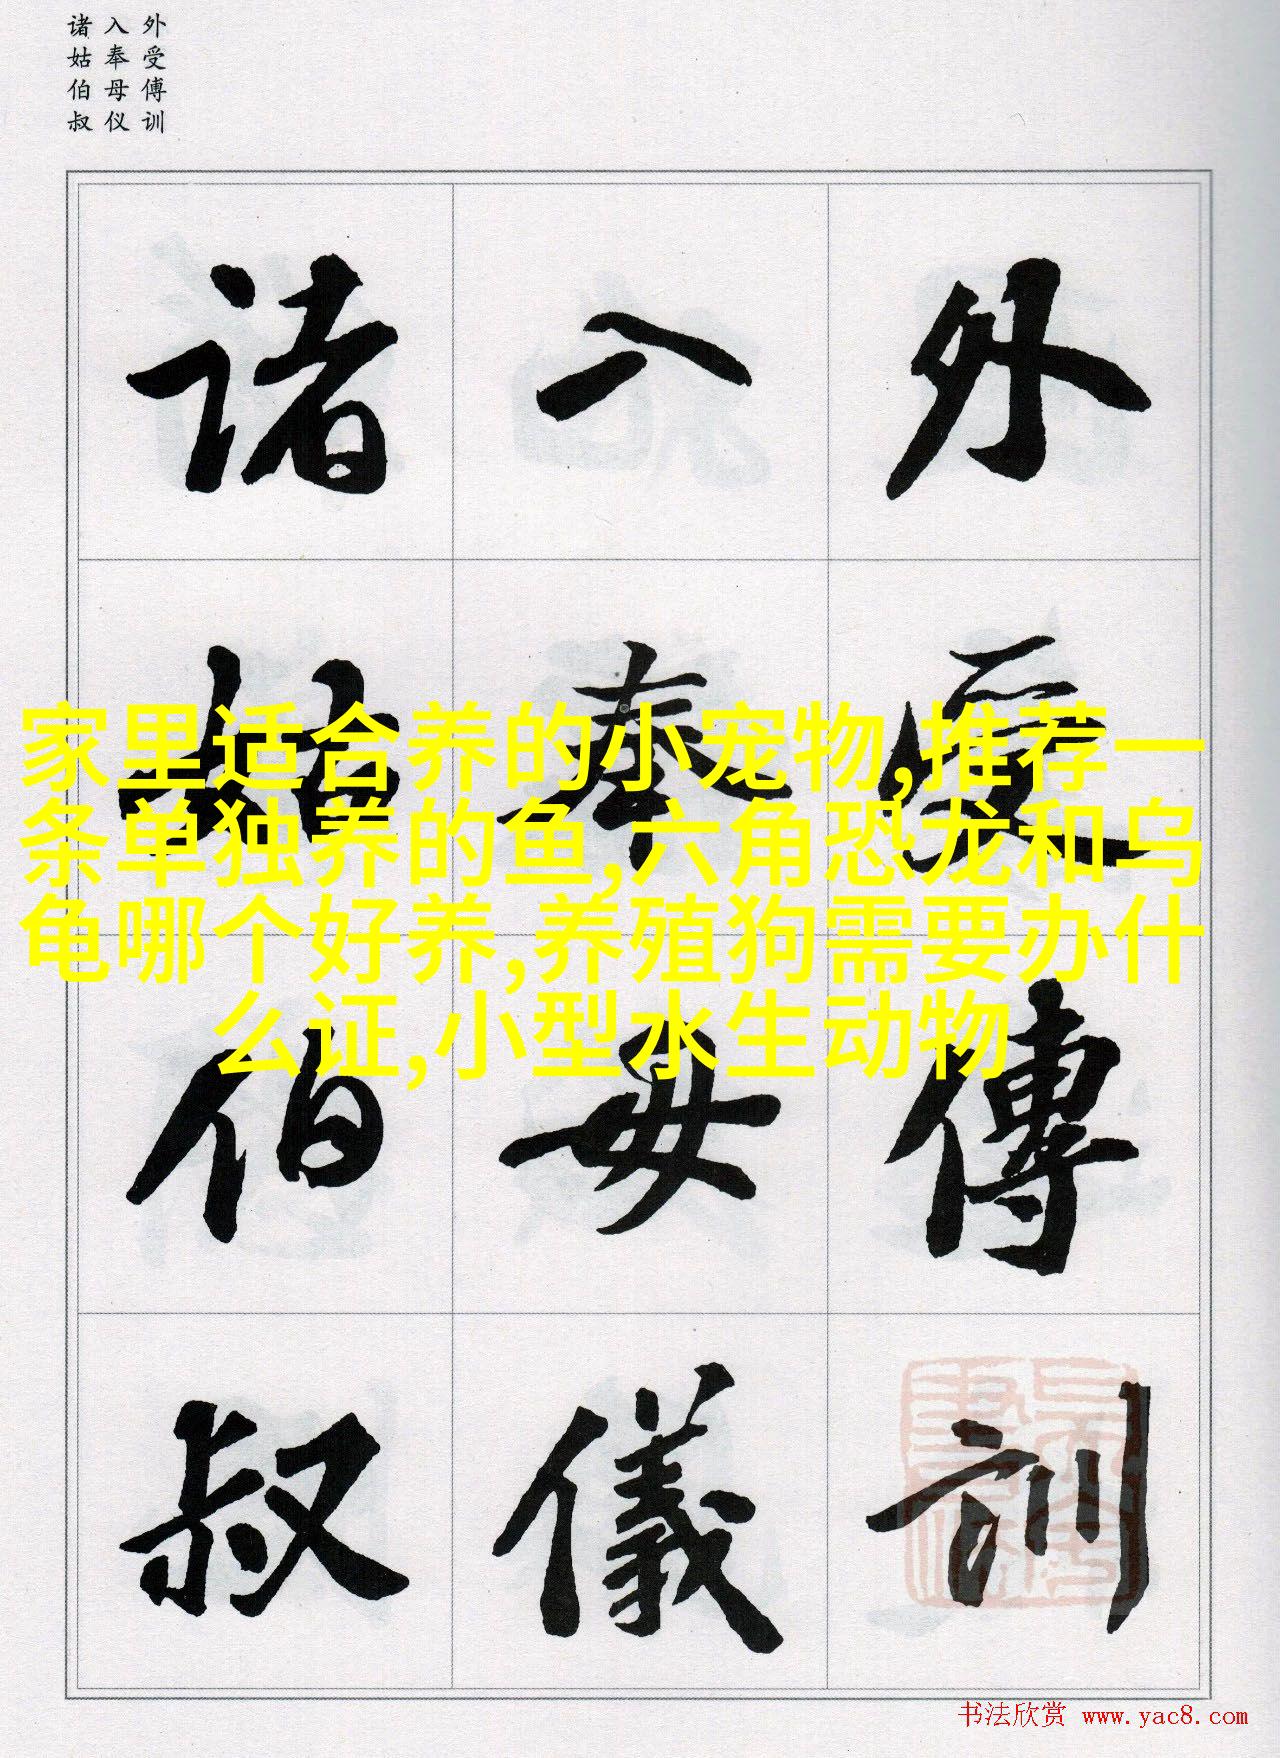 外受傅训
入奉母仪
诸姑伯叔
外受傅訓
入奉母儀
诸姑伯叔
家里适合养的小宠物,推荐一
条单独养的鱼,六角恐龙和乌
龟哪个好养,养殖狗需要办什
么证,小型水生动物
书法欣赏 www.yac8.com